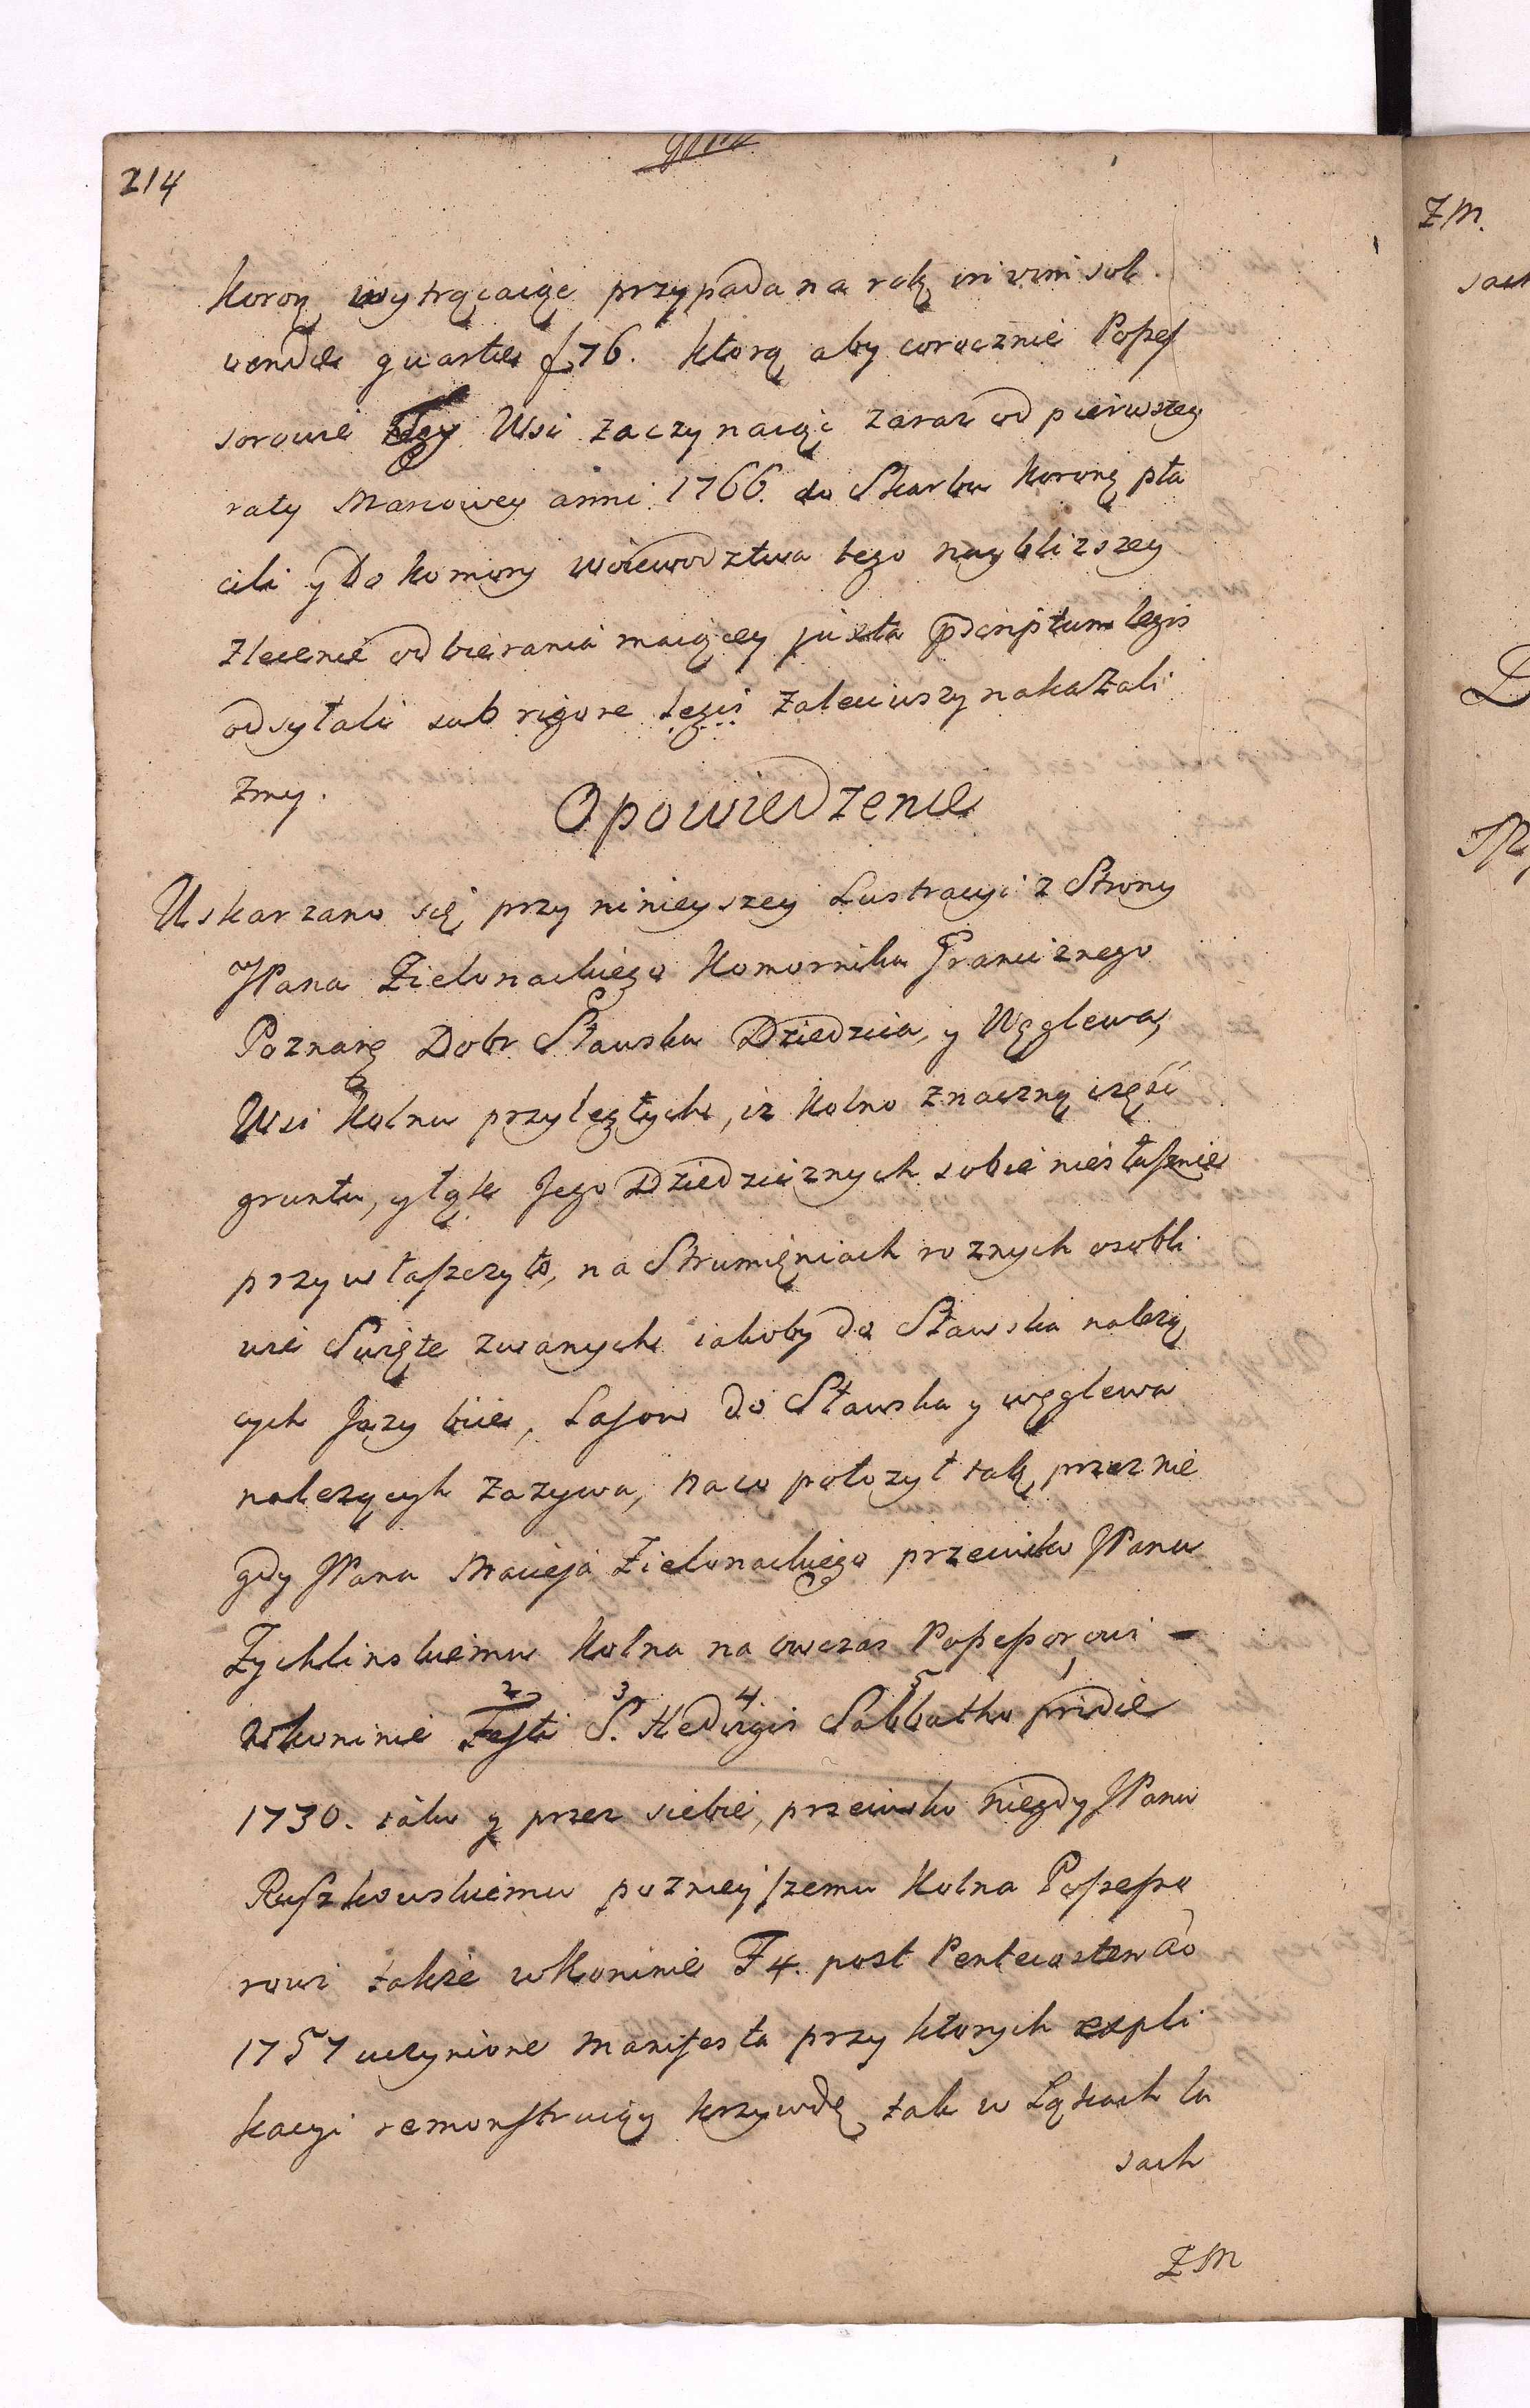 214
Korony wytrącaiąc przypada na rok in vim sol
vendae quartae f 76. Ktorą aby corocznie Possef
sorowie tegy Wsi zaczynaiąc zaraz od pierwszey
raty Marcowey anni 1766. do Skarbu Koroną pła
cili y do Komory woiewodztwa tego naybliższey
zlecenie odbierania maiącey juxta pscriptum legis
odsyłali sub rigore legis zaleciwszy nakazali
zmy.
Opowiedzenie
Uskarzano się przy ninieyszey Lustracyi z Strony
JPana Zielonackiego Komornika Granicznego
Poznang Dobr Sławska Dziedzica, y Węglewa,
Wsi Kolnu przyległych, iz Kolno znaczną część
gruntu, y łąk Jego Dziedzicznych sobie niesłusznie
przywłaszczyło, na Strumięniach roznych osobli
wie Swięte zwanych iakoby do Sławska należą
cych Jazy biie, Lasow do Sławska y węglewa
nalezących zazywa, na co położył tak przez nie
gdy JPana Macieja Zielonackiego przeciwko JPanu
Zychlinskiemu Kolna na owczas Possessorowi –
w Koninie Festi S. Hedvigis Sabbatho pridie
2 3 4 5 1
1730. iako y przez siebie, przeciwko niegdy JPanu
Ruszkowskiemu poznieyszemu Kolna Possesso
rowi także w Koninie F 4. post Pentecosten ao
1757 uczynione Manifesta przy ktorych expli
kacyi remonstruiąc krzywdę tak w Łąkach la
sach
ZM